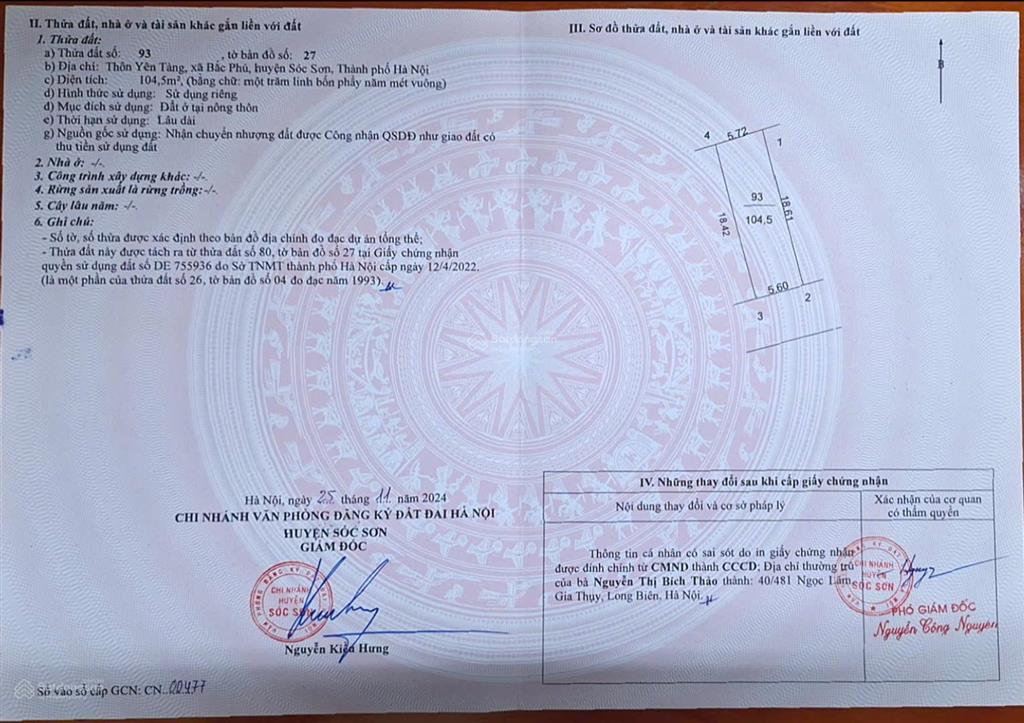 II. Thửa đất, nhà ở và tài sản khác gắn liền với đất
1. Thửa đất:
a) Thửa đất số: 93 , tờ bản đồ số: 27
b) Địa chỉ: Thôn Yên Tàng, xã Bắc Phú, huyện Sóc Sơn, Thành phố Hà Nội
c) Diện tích: 104,5m², (bằng chữ: một trăm linh bốn phẩy năm mét vuông)
d) Hình thức sử dụng: Sử dụng riêng
đ) Mục đích sử dụng: Đất ở tại nông thôn
e) Thời hạn sử dụng: Lâu dài
g) Nguồn gốc sử dụng: Nhận chuyển nhượng đất được Công nhận QSDĐ như giao đất có
thu tiền sử dụng đất
2. Nhà ở: -/-
3. Công trình xây dựng khác: -/-
4. Rừng sản xuất là rừng trồng:-/-
5. Cây lâu năm: -/-
6. Ghi chú:
- Số tờ, số thửa được xác định theo bản đồ địa chính đo đạc dự án tổng thể;
- Thửa đất này được tách ra từ thửa đất số 80, tờ bản đồ số 27 tại Giấy chứng nhận
quyền sử dụng đất số DE 755936 do Sở TNMT thành phố Hà Nội cấp ngày 12/4/2022.
(là một phần của thửa đất số 26, tờ bản đồ số 04 đo đạc năm 1993).
Hà Nội, ngày 25 tháng 11 năm 2024
CHI NHÁNH VĂN PHÒNG ĐĂNG KÝ ĐẤT ĐAI HÀ NỘI
HUYỆN SÓC SƠN
GIÁM ĐỐC
CHI NHÁNH
HUYỆN
SÓC SƠN
Nguyễn Kiều Hưng
Số vào sổ cấp GCN: CN 00477
III. Sơ đồ thửa đất, nhà ở và tài sản khác gắn liền với đất
B
4 5.72 1
93
104,5
18.42
18.61
5.60
3 2
Batdongsan
IV. Những thay đổi sau khi cấp giấy chứng nhận
Nội dung thay đổi và cơ sở pháp lý
Xác nhận của cơ quan
có thẩm quyền
Thông tin cá nhân có sai sót do in giấy chứng nhận
được đính chính từ CMND thành CCCD; Địa chỉ thường trú
của bà Nguyễn Thị Bích Thảo thành: 40/481 Ngọc Lâm,
Gia Thụy, Long Biên, Hà Nội.
CHI NHÁNH
HUYỆN
SÓC SƠN
PHÓ GIÁM ĐỐC
Nguyễn Công Nguyên